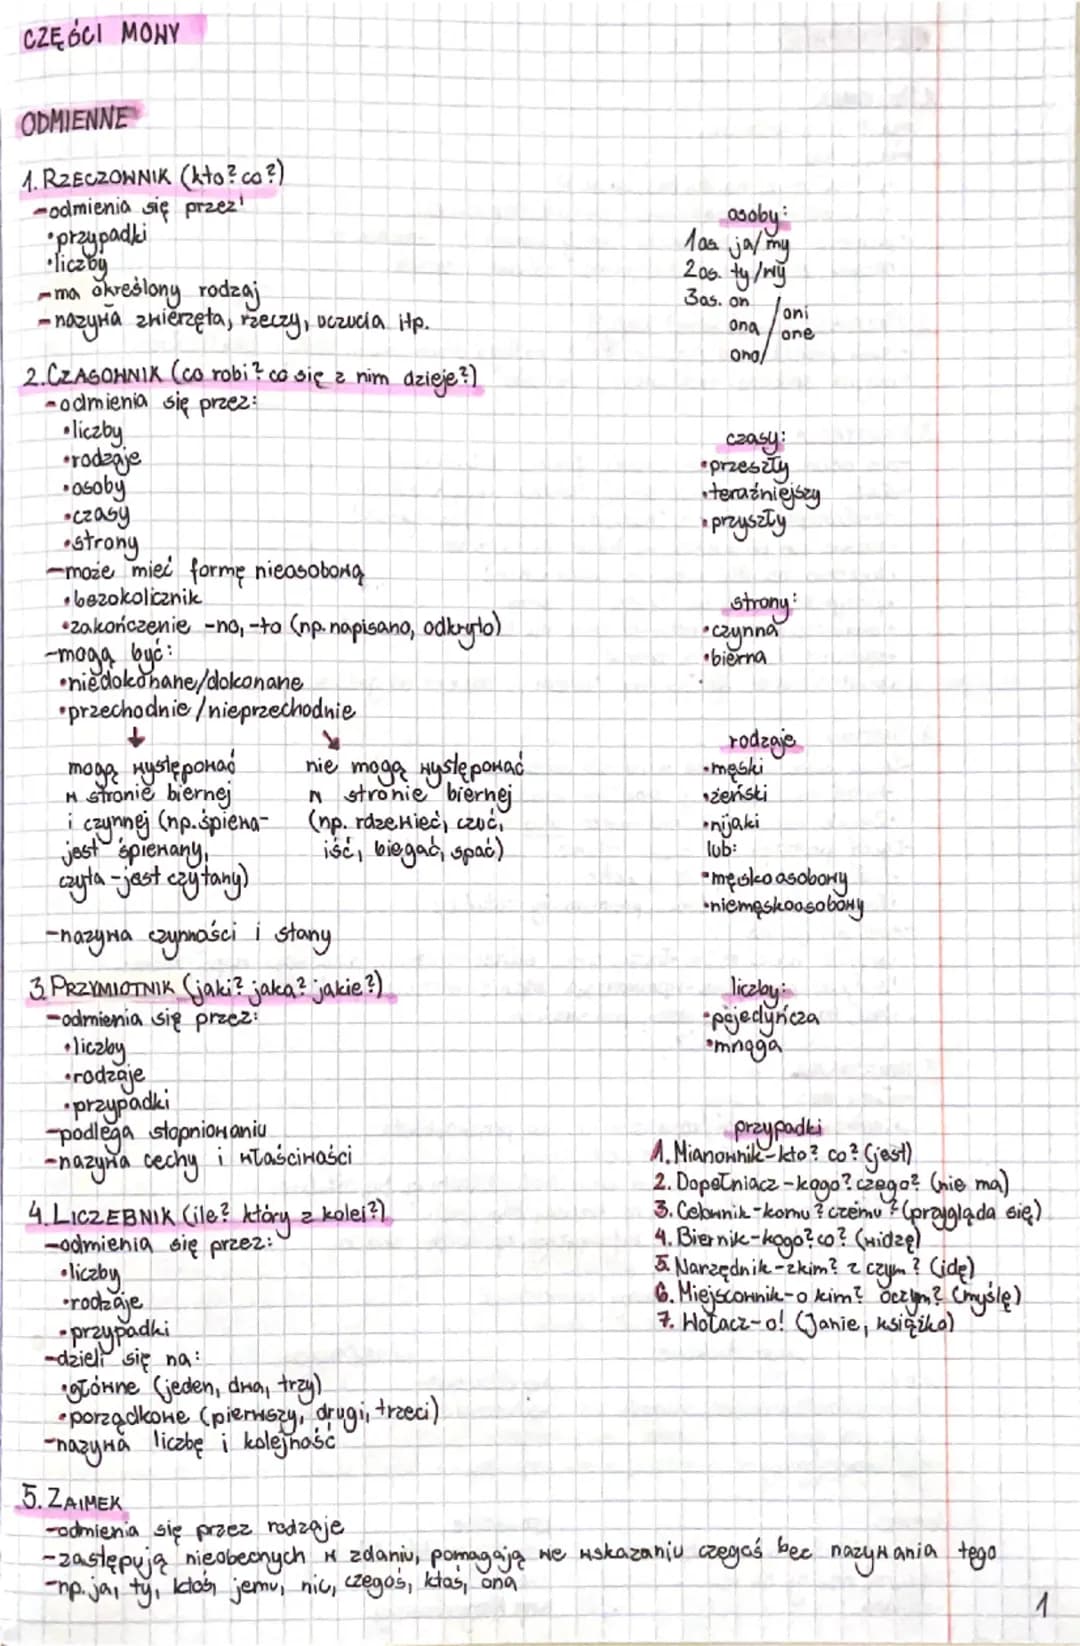 CZĘŚCI MOWY
ODMIENNE
1. RZECZOWNIK (kto? co?)
-odmienia się przez:
•przypadki
•liczby
-ma określony rodzaj
-nazywa zwierzęta, rzeczy, uczucia itp.
2. CZASOWNIK (co robi? co się z nim dzieje?)
-odmienia się przez:
•liczby
•rodzaje
•osoby
•czasy
•strony
-może mieć formę nieosobową
•bezokolicznik
•zakończenie -no, -to (np. napisano, odkryto)
-mogą być:
•niedokonane/dokonane
•przechodnie/nieprzechodnie
↓ ↘
mogą występować
w stronie biernej
i czynnej (np. śpiewa-
jest śpiewany,
czyta - jest czytany)
nie mogą występować
w stronie biernej
(np. rdzewieć, czuć,
iść, biegać, spać)
-nazywa czynności i stany
3. PRZYMIOTNIK (jaki? jaka? jakie?)
-odmienia się przez:
•liczby
•rodzaje
•przypadki
-podlega stopniowaniu
-nazywa cechy i właściwości
4. LICZEBNIK (ile? który z kolei?)
-odmienia się przez:
•liczby
•rodzaje
•przypadki
-dzieli się na:
•główne (jeden, dwa, trzy)
•porządkowe (pierwszy, drugi, trzeci)
-nazywa liczbę i kolejność
5. ZAIMEK
-odmienia się przez rodzaje
-zastępują nieobecnych w zdaniu, pomagają we wskazaniu czegoś bez nazywania tego
-np. ja, ty, ktoś, jemu, nic, czegoś, ktoś, ona
osoby:
1os. ja/my
2os. ty/wy
3os. on
ona / oni
ono/ one
czasy:
•przeszły
•teraźniejszy
•przyszły
strony:
•czynna
•bierna
rodzaje
•męski
•żeński
•nijaki
lub:
•męskoosobowy
•niemęskoosobowy
liczby:
•pojedyńcza
•mnoga
przypadki
1. Mianownik-kto? co? (jest)
2. Dopełniacz - kogo? czego? (nie ma)
3. Celownik - komu? czemu? (przygląda się)
4. Biernik-kogo? co? (widzę)
5. Narzędnik - z kim? z czym? (idę)
6. Miejscownik - o kim? o czym? (myślę)
7. Wołacz - o! (Janie, książko)
1